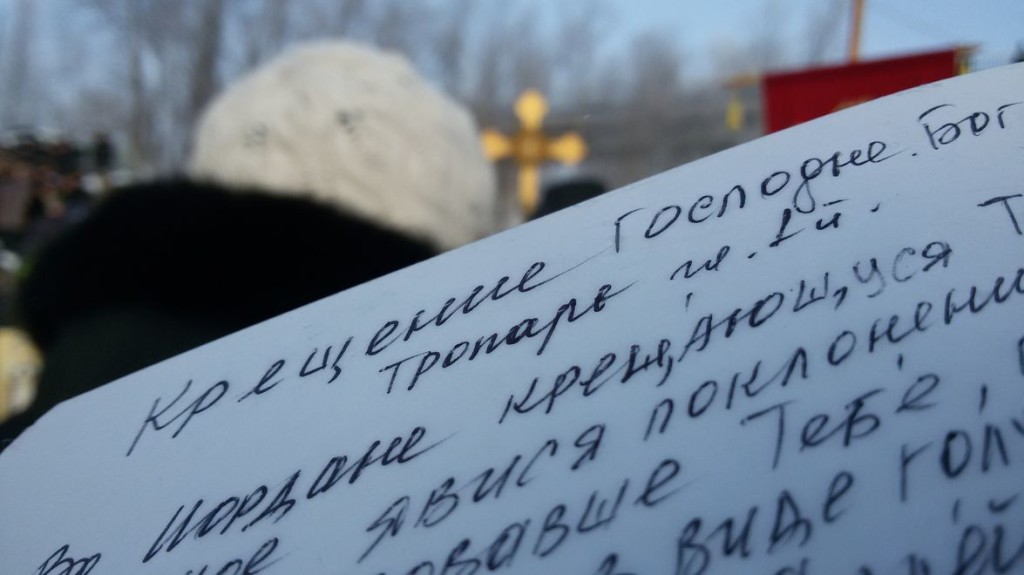 Крещение Господне. Бог
тропарь гл. 1й.
Во Иордане крещающуся Т
явися поклонени
Тебе,
в виде голу